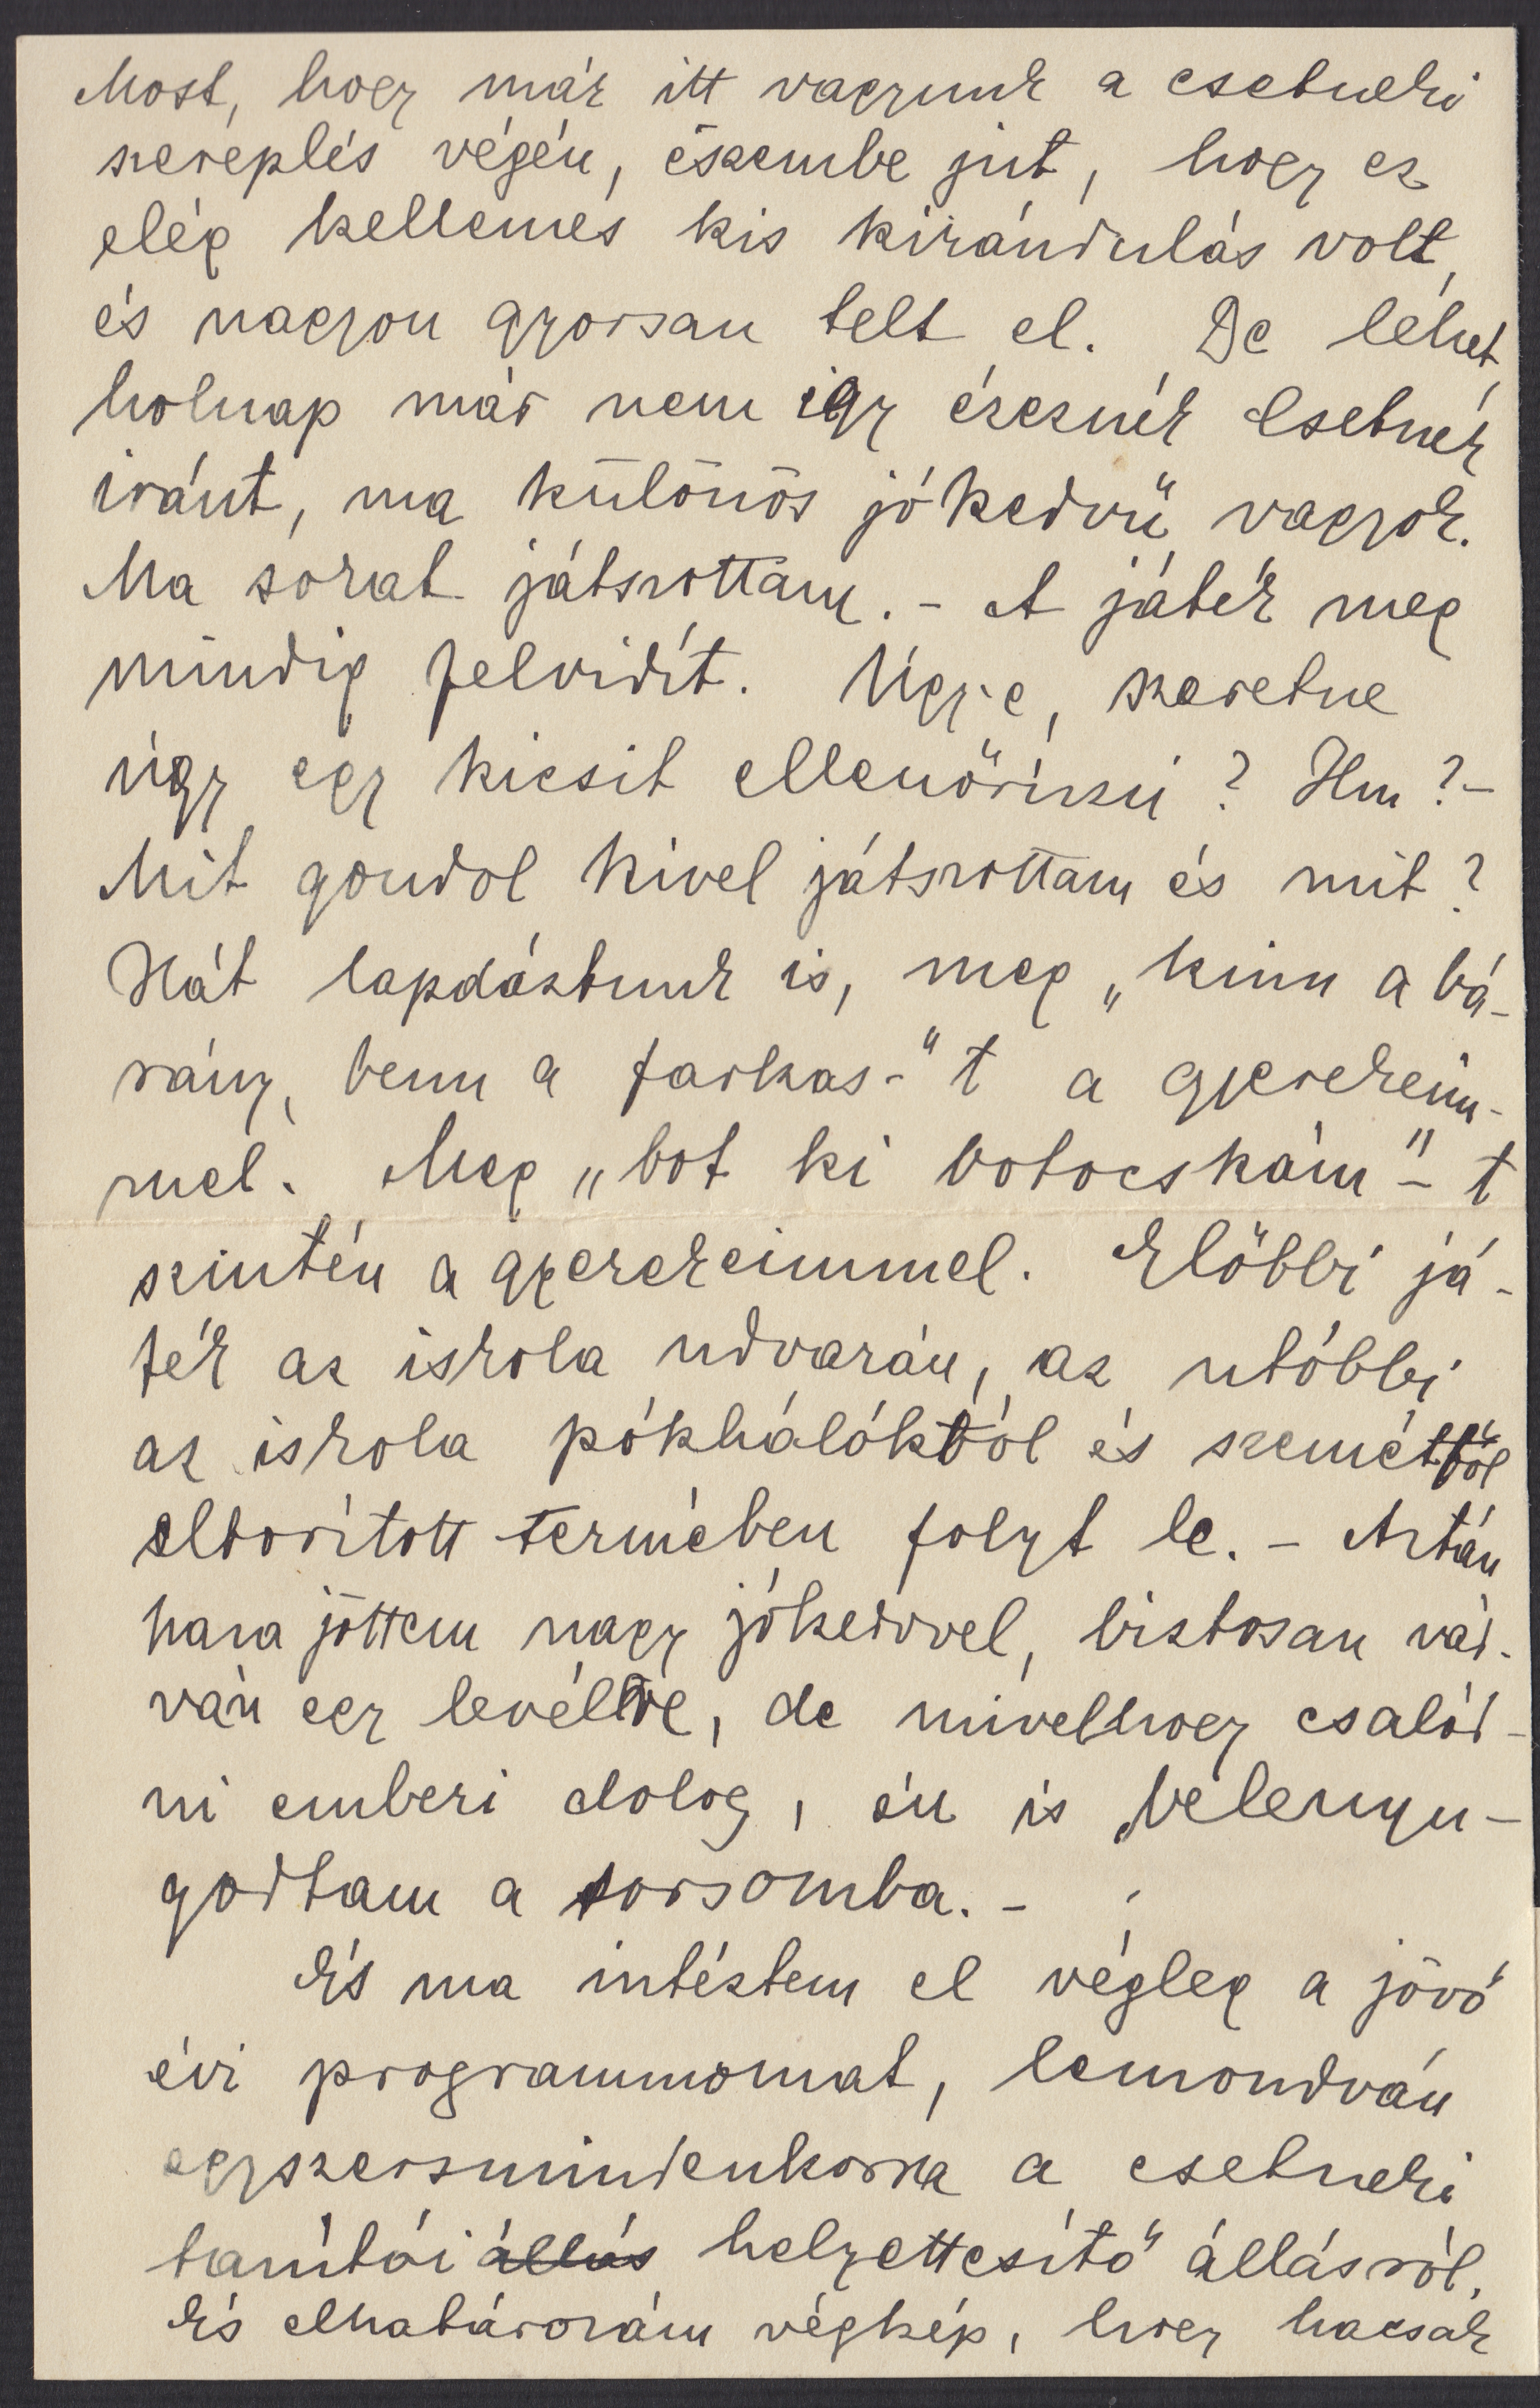 Most, hogy már itt vagyunk a csetneki
szereplés végén, észembe jut, hogy ez
elég kellemes kis kirándulás volt,
és nagyon gyorsan telt el. De lehet,
holnap már nem így éreznék Csetnek
iránt, ma különös jókedvű vagyok.
Ma sokat játszottam. - A játék meg
mindig felvidít. Ugy-e, szeretne
úgy egy kicsit ellenőrizni? Hm? -
Mit gondol kivel játszottam és mit?
Hát lapdáztunk is, meg „kinn a bá-
rány, benn a farkas-"t a gyerekeim-
mel. Meg „bot ki botocskám"-t
szintén a gyerekeimmel. Előbbi já-
ték az iskola udvarán, az utóbbi
az iskola pókhálóktól és szeméttől
elborított termében folyt le. - Aztán
haza jöttem nagy jókedvvel, biztosan vár-
ván egy levélre, de mivelhogy csalód-
ni emberi dolog, én is belenyu-
godtam a sorsomba. -
És ma intéztem el végleg a jövő
évi programmomat, lemondván
egyszersmindenkorra a csetneki
tanítói állás helyettesítő állásról.
És elhatározám végkép, hogy hacsak